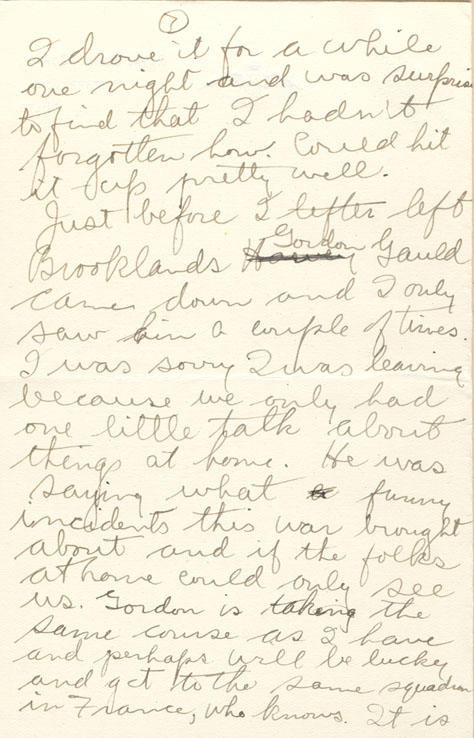 7
I drove it for a while
one night and was surpris
to find that I hadn't
forgotten how. Could hit
it up pretty well.
Just before I lefter left
Brooklands Harvey Gordon Gauld
came down and I only
saw him a couple of times.
I was sorry I was leaving
because we only had
one little talk about
things at home. He was
saying what a funny
incidents this war brought
about and if the folks
at home could only see
us. Gordon is taking the
same course as I have
and perhaps will be lucky
and get to the same squadron
in France, who knows. It is